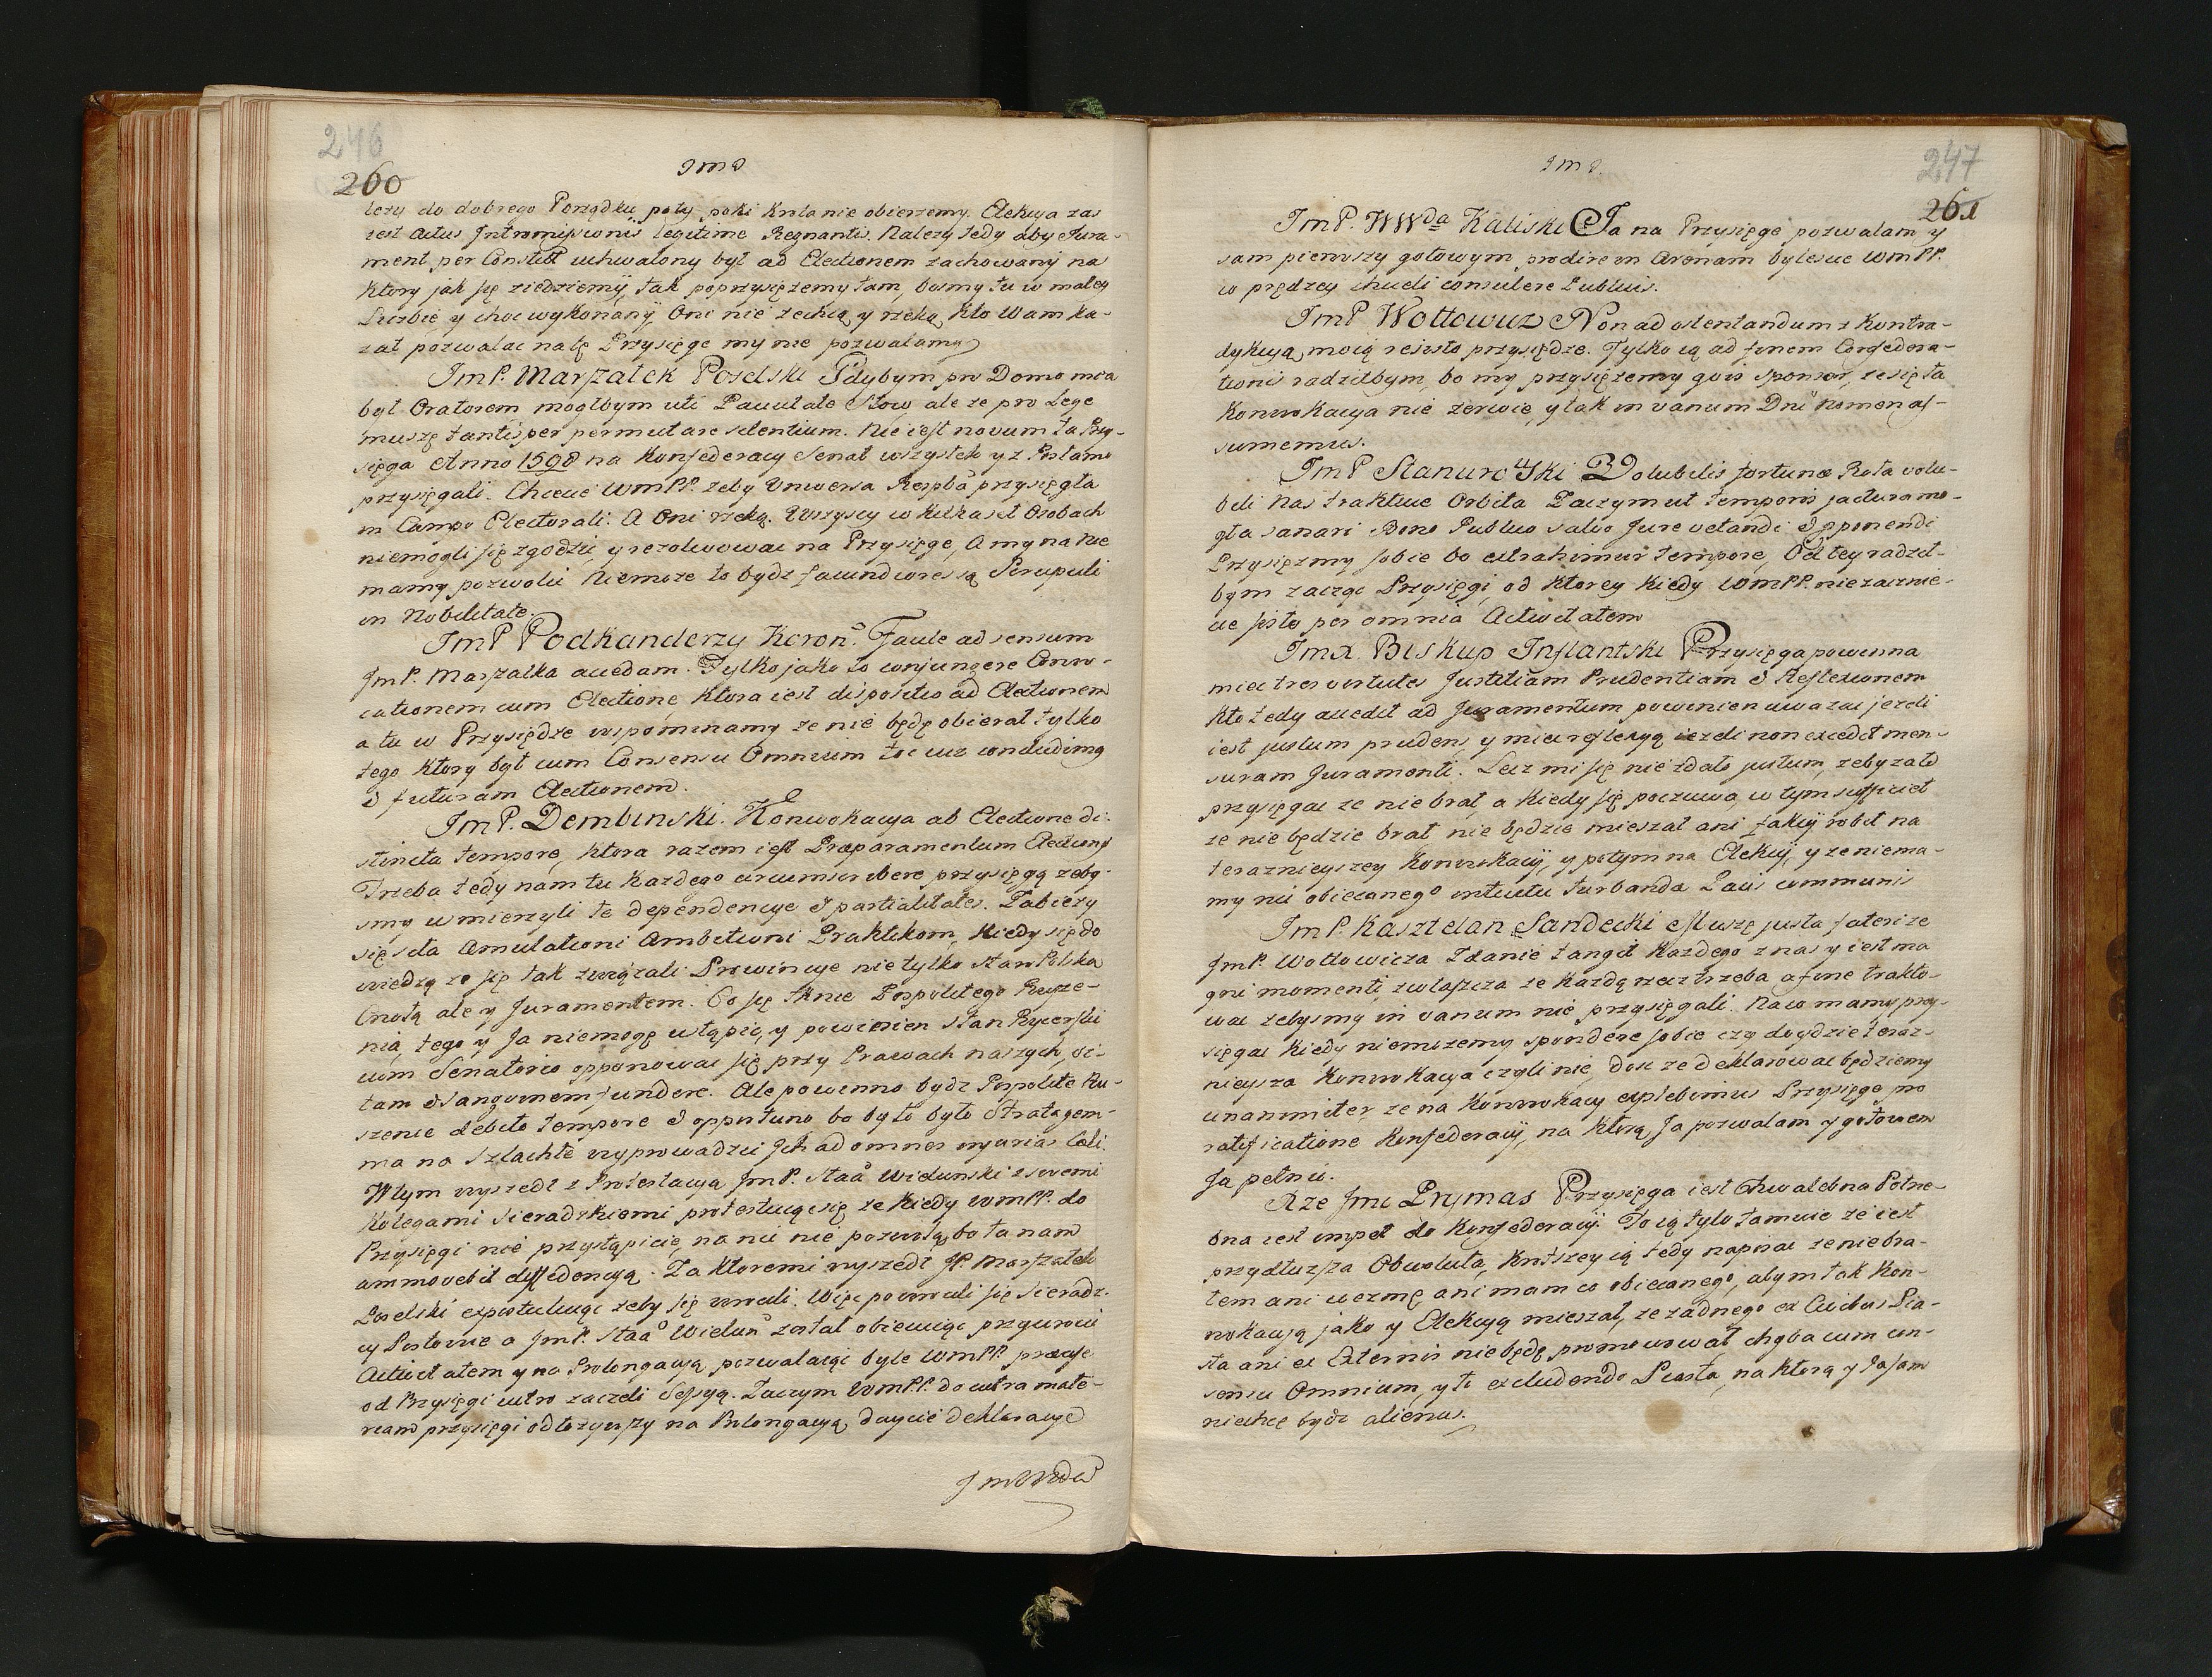 246
260
JmP
leży do dobrego Porządku poty poki Krola nie obierzemy. Elekcya zas
iest Actus Intromissionis legitime Regnantis. Należy tedy aby Jura-
ment per Constitt uchwalony był ad Electionem zachowany na
Ktory jak się ziedziemy, tak poprzysiężemy tam, bosmy tu w małey
Liczbie y choc wykonany, Oni nie zechcą y rzeką, Kto Wam ka-
zał pozwalac natę Przysięgę my nie pozwalamy
JmP. Marszałek Poselski Gdybym pro Domo mea
był Oratorem mogłbym uti Paucitate Słow ale ze pro Lege
muszę tantisper permutare silentium. Nie iest novum ta Przy-
sięga Anno 1598 na Konfederacy Senat wszystek y z Posłami
przysięgali. Chcecie WmPP. żeby Vniversa Respba przysięgła
in Campo Electorali. A Oni rzeką. Wszyscy w Kilkaset Osobach
niemogli się zgodzić, y rezolwowac na Przysięgę, A my na nię
mamy pozwolic Niemoże to bydz facundiores są Scrupuli
in Nobilitate.
JmP Podkanclerzy Koron. Facile ad sensum
JmP. Marszałka accedam. Tylko jako to conjungere Convo-
cationem cum Electione, Ktora iest dispositio ad Electionem
a tu w Przysiędze wspominamy ze nie będę obierał tylko
tego Ktory był cum Consensu Omnium toc iuz concludimy
& futuram Electionem.
JmP. Dembinski. Konwokacya ab Electione di-
stincta tempore, Ktora razem iest Præparamentum Electiony
Trzeba tedy nam tu Kazdego circumscribere przysięgą zeby-
smy usmierzyli te dependencye & partialitates. Zabieży
się seta Æmulationi Ambitioni Praktikom, Kiedy się do
wiedzą ze się tak związali Prowincye nie tylko staro Polską
Cnotą ale y Juramentem. Co się tknie Pospolitego Rusze-
nia, tego y Ja niemogę ustąpic, y powinien stan Rycerski
cum Senatorio opponowac się przy Prawach naszych, vi-
tam & Sangvinem fundere. Ale powinno bydz Pospolite Ru-
szenie debito tempore & opportuno, bo by to było Stratagem-
ma na Szlachte wyprowadzic Jch ad omnes injurias Cæli.
Wtym wyszedł z Protestacyą JmP. Staa Wielunski z swemi
Kolegami Sieradzkiemi protestuiąc się ze Kiedy WmPP. do
Przysięgi nie przystąpicie, na nic nie pozwolą, bo ta nam
ammovebit diffidencyą. Za Ktoremi wyszedł JP. Marszałek
Poselski expostuluiąc zeby się wrocili. Więc powrocili się Sieradz-
cy Posłowie a JmP. Staa Wielun został obiecuiąc przywrocic
Activitatem y na Prolongacyą pozwalaiąc byle WmPP. præcise
od Przysięgi iutro zaczeli Sessyą. Zaczym WmPP. do iutra mate-
ream przysięgi odłozywszy na Prolongacyą daycie deklaracye
JmPWda
247
261
JmP.
JmP. WWda Kaliski Ja na Przysięgę pozwalam y
sam pierwszy gotowym prodire in Arenam bylescie WmPP.
co prędzey chcieli consulere Publicis.
JmP Wołłowicz Non ad ostentandum z Kontra-
dykcyą moią resisto przysiędze. Tylko ią ad finem Confedera-
tionis radziłbym, bo my przysiężemy quis sponsor, ze się ta
Konwokacya nie zerwie, y tak in vanum Dni Nomen as-
sumemus.
JmP Stanurowski Volubilis fortunæ Rota volu-
bili nas traktuie Orbita Zaczym ut temporis jactura mo-
gła sanari Bono Publico salvo Jure vetandi & opponendi
Przysięzmy sobie bo extrahimur tempore, Od tey radził-
bym zacząc Przysięgi, od Ktorey Kiedy WmPP. niezacznie-
cie sisto per omnia Activitatem
JmX. Biskup Inflantski Przysięga powinna
miec tres virtutes Justitiam Prudentiam & Reflexionem
Kto tedy accedit ad Juramentum powinien uwazac jezeli
iest justum prudens y miec reflexyą iezeli non excedit men-
suram Juramenti. Lecz mi się nie zdało justum, zeby zato
przysięgac ze nie brał, a Kiedy się poczuwa, w tym sufficiet
ze nie będzie brał, nie będzie mieszał ani fakcyi robił na
teraznieyszey Konwokacyi, y potym na Elekcyi, y ze niema-
my nic obiecanego intuitu turbandæ Pacis communis
JmP. Kasztelan Sandecki Muszę justa fateri ze
JmP. Wołłowicza Zdanie tangit Kazdego z nas y iest ma
gni momenti, zwłaszcza ze Kazdą rzecz trzeba a fine trakto-
wac zebysmy in vanum nie przysięgali. Naco mamy przy-
sięgac Kiedy niemozemy spondere sobie czy doydzie teraz-
nieysza Konwokacya czyli nie, dosc ze deklarowac będziemy
unanimiter, ze na Konwokacy explebimus Przysięgę pro
ratificatione Konfederacyi, na Ktorą Ja pozwalam y gotowem
Ja pełnic.
Xze Jmc Prymas Przysięga iest Chwalebna Potrze-
bna iest impet do Konfederacyi. To ią tylo tamuie ze iest
przydłuzsza Obwoluta, Krotszey ią tedy napisac ze nie bra-
łem ani wezmę ani mam co obiecanego, abym tak Kon-
wokacyą jako y Elekcyą mieszał, ze zadnego ex Civibus Pia-
sta ani ex Externis nie będę promowował chyba cum con-
sensu Omnium, y to excludendo Piasta, na Ktorą y Ja sam
niechcę bydz alienus.